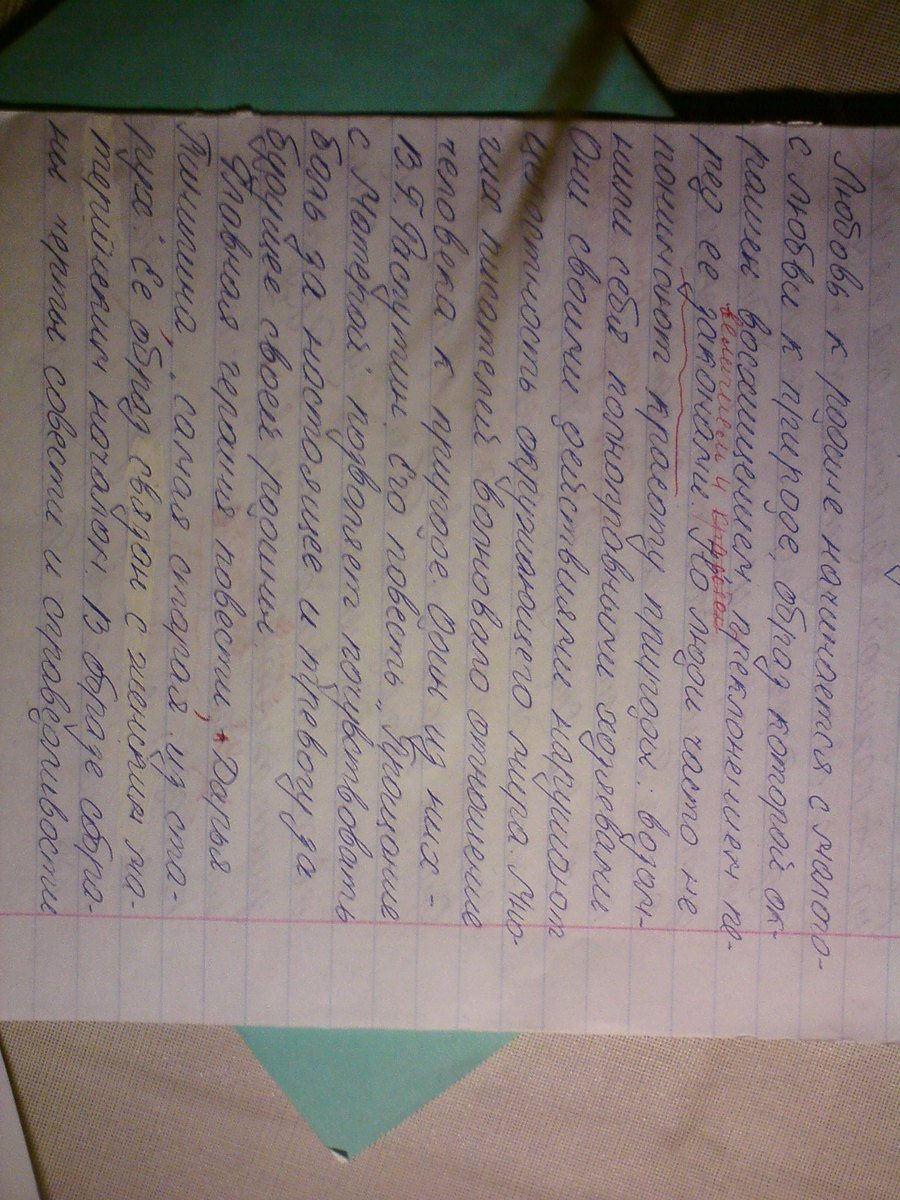 Любовь к родине начинается с малого-
с любви к природе, образ которой ок-
рашен восхищением и преклонением пе-
величием и
ред ее законами. Но люди часто не
понимают красоту природы: возом-
нили себя полноправными хозяевами
Они своими действиями нарушают
целостность окружающего мира. Мно-
гих писателей волновало отношение
человека к природе. Один из них -
В.Г. Распутин. Его повесть „Прощание
с Матерой" позволяет почувствовать
боль за настоящее и тревогу за
будущее своей родины.
Главная героиня повести, Дарья
Пинигина, „самая старая из ста-
рух". Её образ связан с женским ма-
теринским началом. В образе собра-
ны черты совести и справедливости